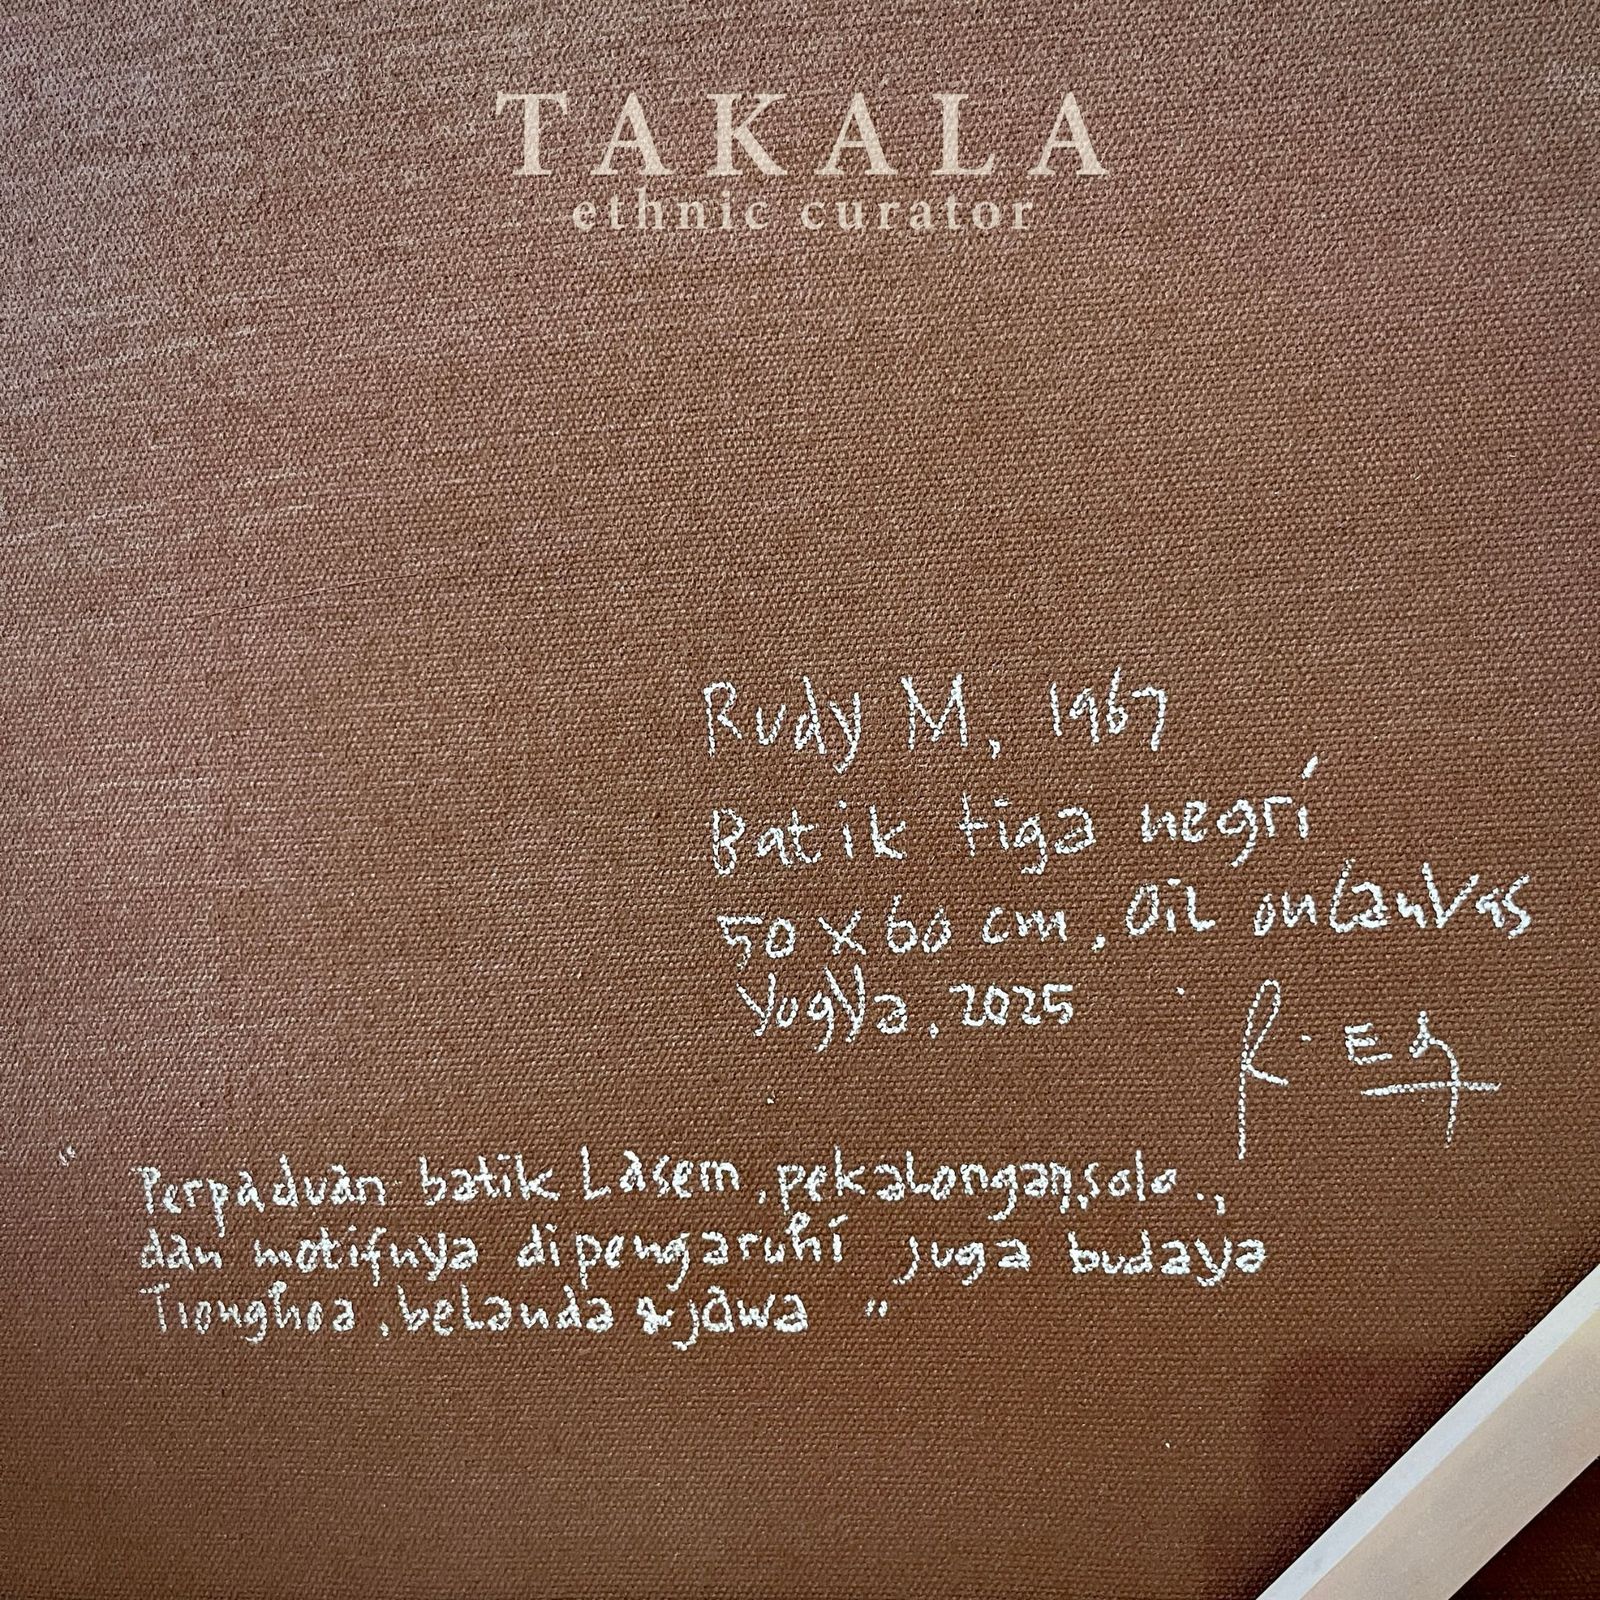 TAKALA
ethnic curator
Rudy M, 1967
Batik tiga negri
50 x 60 cm, Oil on Canvas
Yogya, 2025
" Perpaduan batik Lasem, pekalongan, solo.,
dan motifnya dipengaruhi juga budaya
Tionghoa, belanda & jawa "